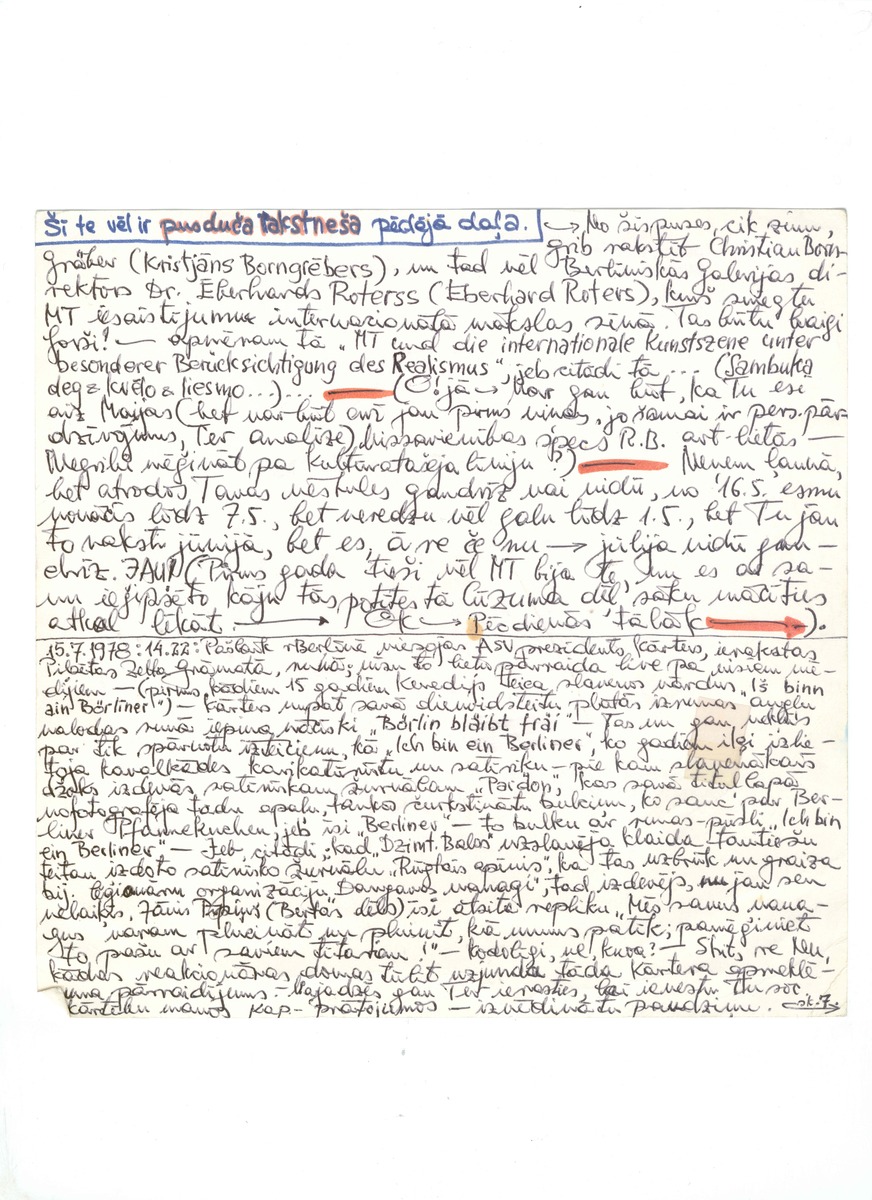 Šī te vēl ir pusduča rakstneša pēdējā daļa. → No šīspuses, cik zinu,
grib rakstīt Christian Born-
gräber (Kristjāns Borngrēbers), un tad vēl Berlīniskās Galerijas di-
rektors Dr. Ēberhards Roterss (Eberhard Roters), kuŗš sniegtu
MT iesaistījumu internacionālā mākslas sēnā. Tas būtu baigi
forši! — apmēram tā „MT und die internationale Kunstszene unter
besonderer Berücksichtigung des Realismus" jeb citādi tā .... (Sambuka
deg & kvēlo & liesmo...)... (O! jā → Var gan būt, ka Tu esi
aiz Maijas (bet varbūt arī jau pirms viņas, jo šamai ir pers. pār-
dzīvojums, Tev analīze) bissavienības specs R.B. art-lietās —
Negribi mēģināt pa kultūratašeja līniju?) Neņem ļaunā,
bet atrodos Tavas vēstules gandrīz vai vidū, no 16.5. esmu
nonācis līdz 7.5., bet neredzu vēl galu līdz 1.5., bet Tu jau
to raksti jūnijā, bet es, ā re če nu → jūlija vidū gan-
drīz. JAUP (Pirms gada tieši vēl MT bija te un es ar sa-
vu ieģipsēto kāju tās potītes tā lūzuma dēļ sāku mācīties
atkal likāt. → Ok → Pēcdienās tālāk →).
15.7.1978: 14.22: Pašlaik rBerlīnē viesojas ASV prezidents Kārters, ierakstas
Pilsētas Zelta Grāmatā, runā; visu to lietu pārraida live pa visiem mē-
dijiem — (pirms kādiem 15 gadiem Kenedijs teica slavenos vārdus „Iš binn
ain Börliner") — Kārters nupat savā dienvidsteitu platās izrunas angļu
valodas runā iepina vāciski „Börlin blaibt frai" — Tas nu gan nekļūs
par tik spārnotu izteicienu, kā „Ich bin ein Berliner", ko gadiem ilgi izhe-
toja kavalkādes karikatūristu un satiriķu — pie kam slavenākais
džoks izdevās satiriskam žurnālam „Pardon", kas savā titullapā
nofotografēja tādu apaļu, taukos čurkstinātu bulciņu, ko sauc par Ber-
liner Pfannekuchen, jeb īsi „Berliner" — to bulku ar runas-pūsli „Ich bin
ein Berliner" — Jeb, citādi, kad „Dzimt. Balss" uzslavēja klaida tautiešu
teitan izdoto satirisko žurnālu „Rūgtais apinis", ka tas uzbrūk un graiza
bij. leģionāru organizāciju „Daugavas vanagi", tad izdevējs, nu jau sen
nelaiķis, Jānis Pūpiņš (Bertas dēls) īsi atsita repliku „Mēs savus vana-
gus varam plucināt un pluinīt, kā mums patīk; pamēģiniet
to pašu ar saviem tītariem!" — kodolīgi, ne, kuva? — Skat, re Nu,
kādas reakcionāras domas tūlīt uzjunda tāda Kārtera apmeklē-
juma pārraidījums. — Vajadzēs gan Tev ierasties, lai ienestu tu soc.
kārtību manos kap- prātojumos — izvēdinātu paudziņu. sk. 7.